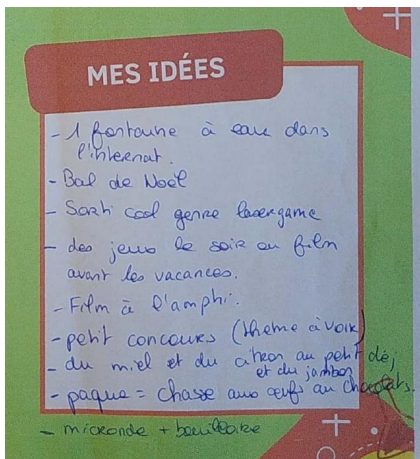 MES IDÉES
- 1 fontaine à eau dans
l'internat.
- Bal de Noël
- Sorti cool genre lasergame
- des jeux le soir ou film
avant les vacances.
- Film à l'amphi.
- petit concours (thème à voir)
- du miel et du citron au petit déj
et du jambon
- paque = chasse aux œufs au chocolats.
- micronde + bouilloire